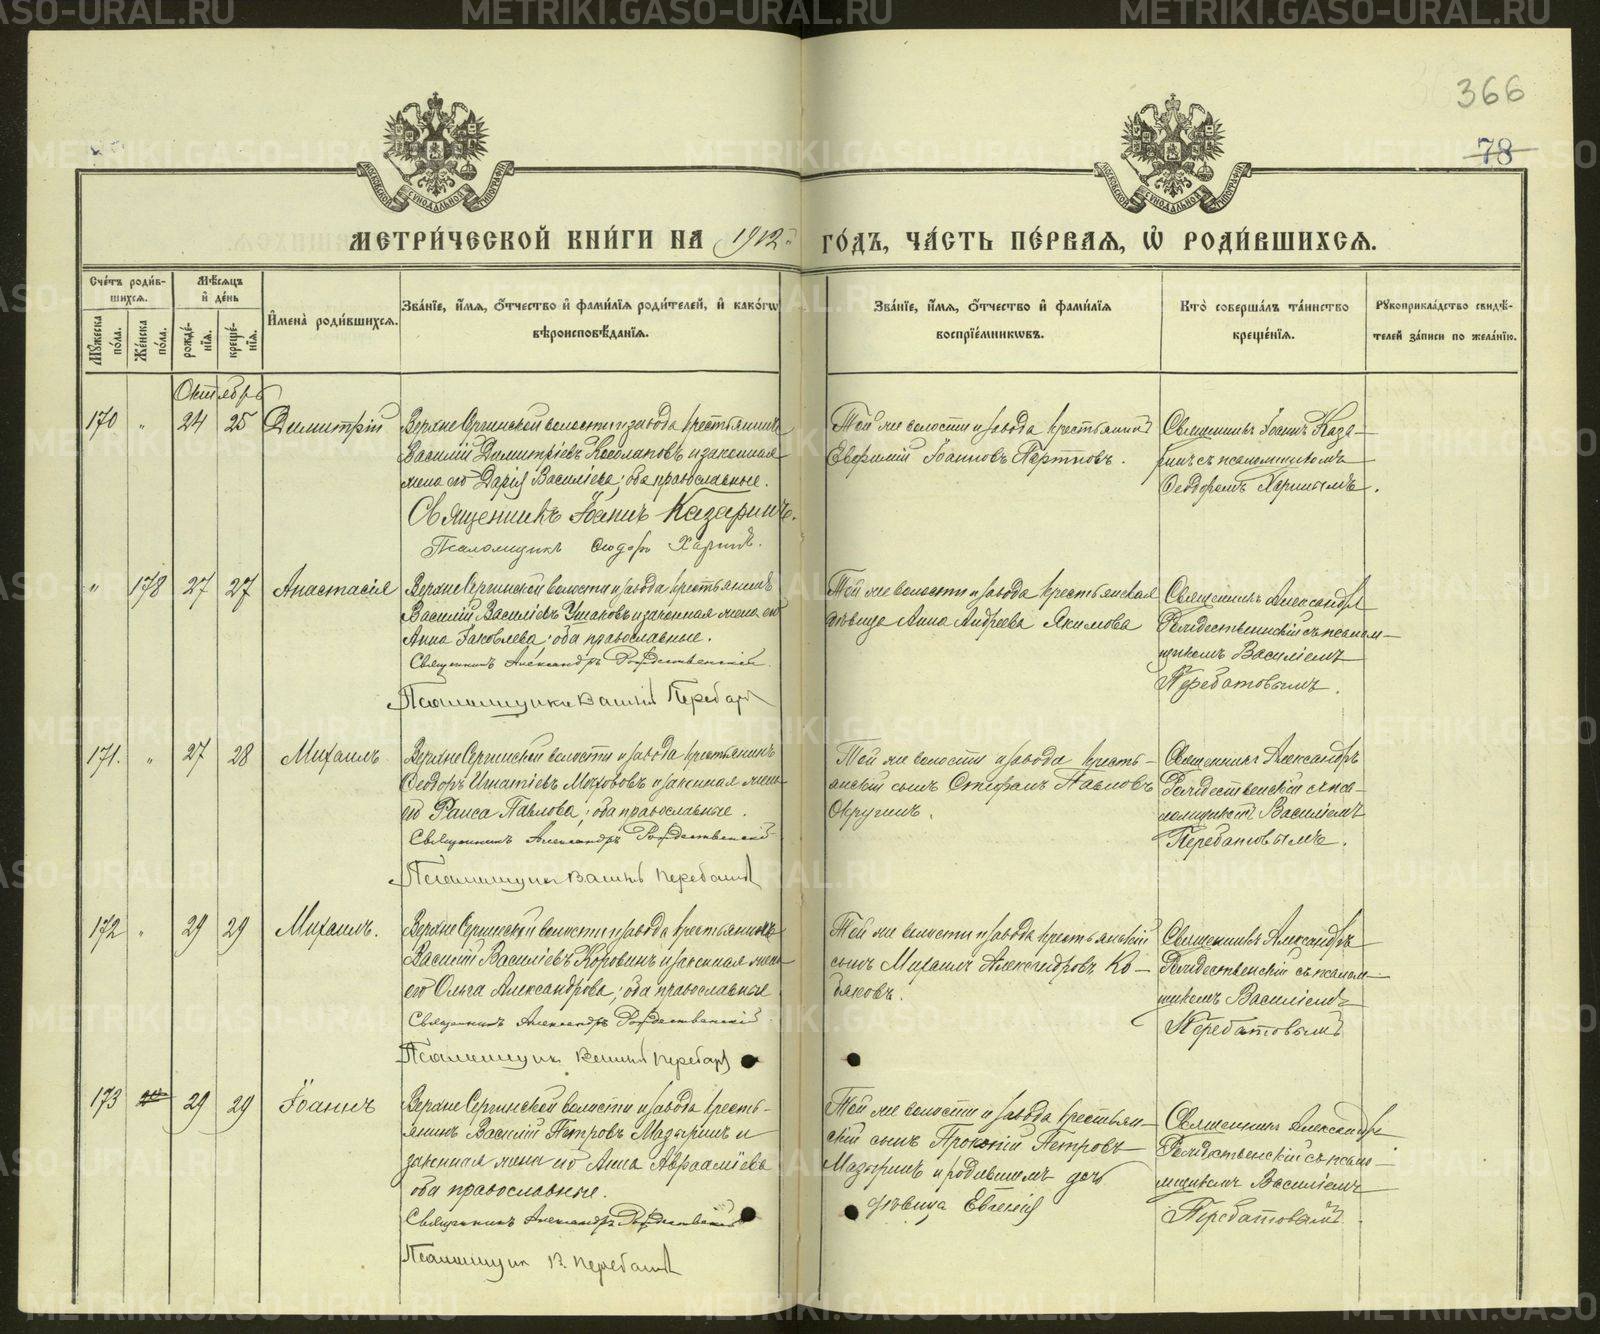 METRIKI.GASO-URAL.RU
366
78
МОСКОВСКОЙ СѴНОДАЛЬНОЙ ТИПОГРАФІИ
МОСКОВСКОЙ СѴНОДАЛЬНОЙ ТИПОГРАФІИ
МЕТРИ́ЧЕСКОЙ КНИ́ГИ НА 1912 ГО́ДЪ, ЧА́СТЬ ПЕ́РВАЯ, Ѡ҆ РОДИ́ВШИХСЯ.
Сче́тъ роди́в-
шихся.
Мꙋ́жеска по́ла.
Же́нска по́ла.
Мѣ́сяцъ
и҆ де́нь
рожде́нїя.
креще́нїя.
И҆мена̀ роди́вшихся.
Зва́нїе, и҆́мя, ѻ҆́тчество и҆ фами́лїя роди́телей, и҆ како́гѡ
вѣроисповѣ́данїя.
Зва́нїе, и҆́мя, ѻ҆́тчество и҆ фами́лїя
воспрїе́мникѡвъ.
Кто̀ соверша́лъ та́инство
креще́нїя.
Рꙋкоприкла́дство свидѣ́-
телей за́писи по жела́нїю.
Октябрь
170 " 24 25 Димитрій
Верхне Сергинской волости и завода крестьянинъ
Василій Димитріевъ и законная
жена его Дарія Васильева; оба православные.
Священникъ Іоаннъ Казаринъ.
Псаломщикъ Ѳеодоръ
Той же волости и завода крестьянинъ
Евфимій Іоанновъ Портновъ.
Священникъ Іоаннъ Каза-
ринъ съ псаломщикомъ
Ѳеодоромъ
" 178 27 27 Анастасія
Верхне Сергинской волости и завода крестьянинъ
Василій Васильевъ Ушаковъ и законная жена его
Анна Іаковлева; оба православные.
Священникъ Александръ Рождественскій.
Псаломщикъ Василій Перебат
Той же волости и завода крестьянская
дѣвица Анна Андреева Якимова
Священникъ Александръ
Рождественскій съ псалом-
щикомъ Василіемъ
Перебатовымъ.
171. " 27 28 Михаилъ
Верхне Сергинской волости и завода крестьянинъ
Ѳеодоръ Игнатіевъ и законная жена
его Раиса Павлова; оба православные.
Священникъ Александръ Рождественскій
Псаломщикъ Василій Перебатов
Той же волости и завода кресть-
янскій сынъ Стефанъ Павловъ
Округинъ.
Священникъ Александръ
Рождественскій съ пса-
ломщикомъ Василіемъ
Перебатовымъ.
172 " 29 29 Михаилъ.
Верхне Сергинской волости и завода крестьянинъ
Василій Василіевъ Коровинъ и законная жена
его Ольга Александрова; оба православные
Священникъ Александръ Рождественскій.
Псаломщикъ Василій Перебат
Той же волости и завода крестьянскій
сынъ Михаилъ Александровъ Ко-
бяковъ.
Священникъ Александръ
Рождественскій съ псалом-
щикомъ Василіемъ
Перебатовымъ
173 29 29 Іоаннъ
Верхне Сергинской волости и завода кресть-
янинъ Василій Петровъ Мазыринъ и
законная жена его Анна Авраамиева
оба православные.
Священникъ Александръ Рождественскій
Псаломщикъ В. Перебатов
Той же волости и завода крестьян-
скій сынъ Прокопій Петровъ
Мазыринъ и дочь
дѣвица Евгенія
Священникъ Александръ
Рождественскій съ псало-
мщикомъ Василіемъ
Перебатовымъ.